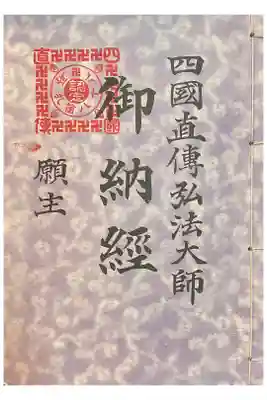 四國直傳弘法大師
御納經
願主
四國
直傳